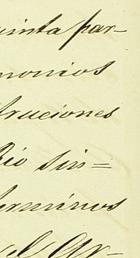 uinta par-
monios
truciones
Rio sin=
terminos
el Ar-